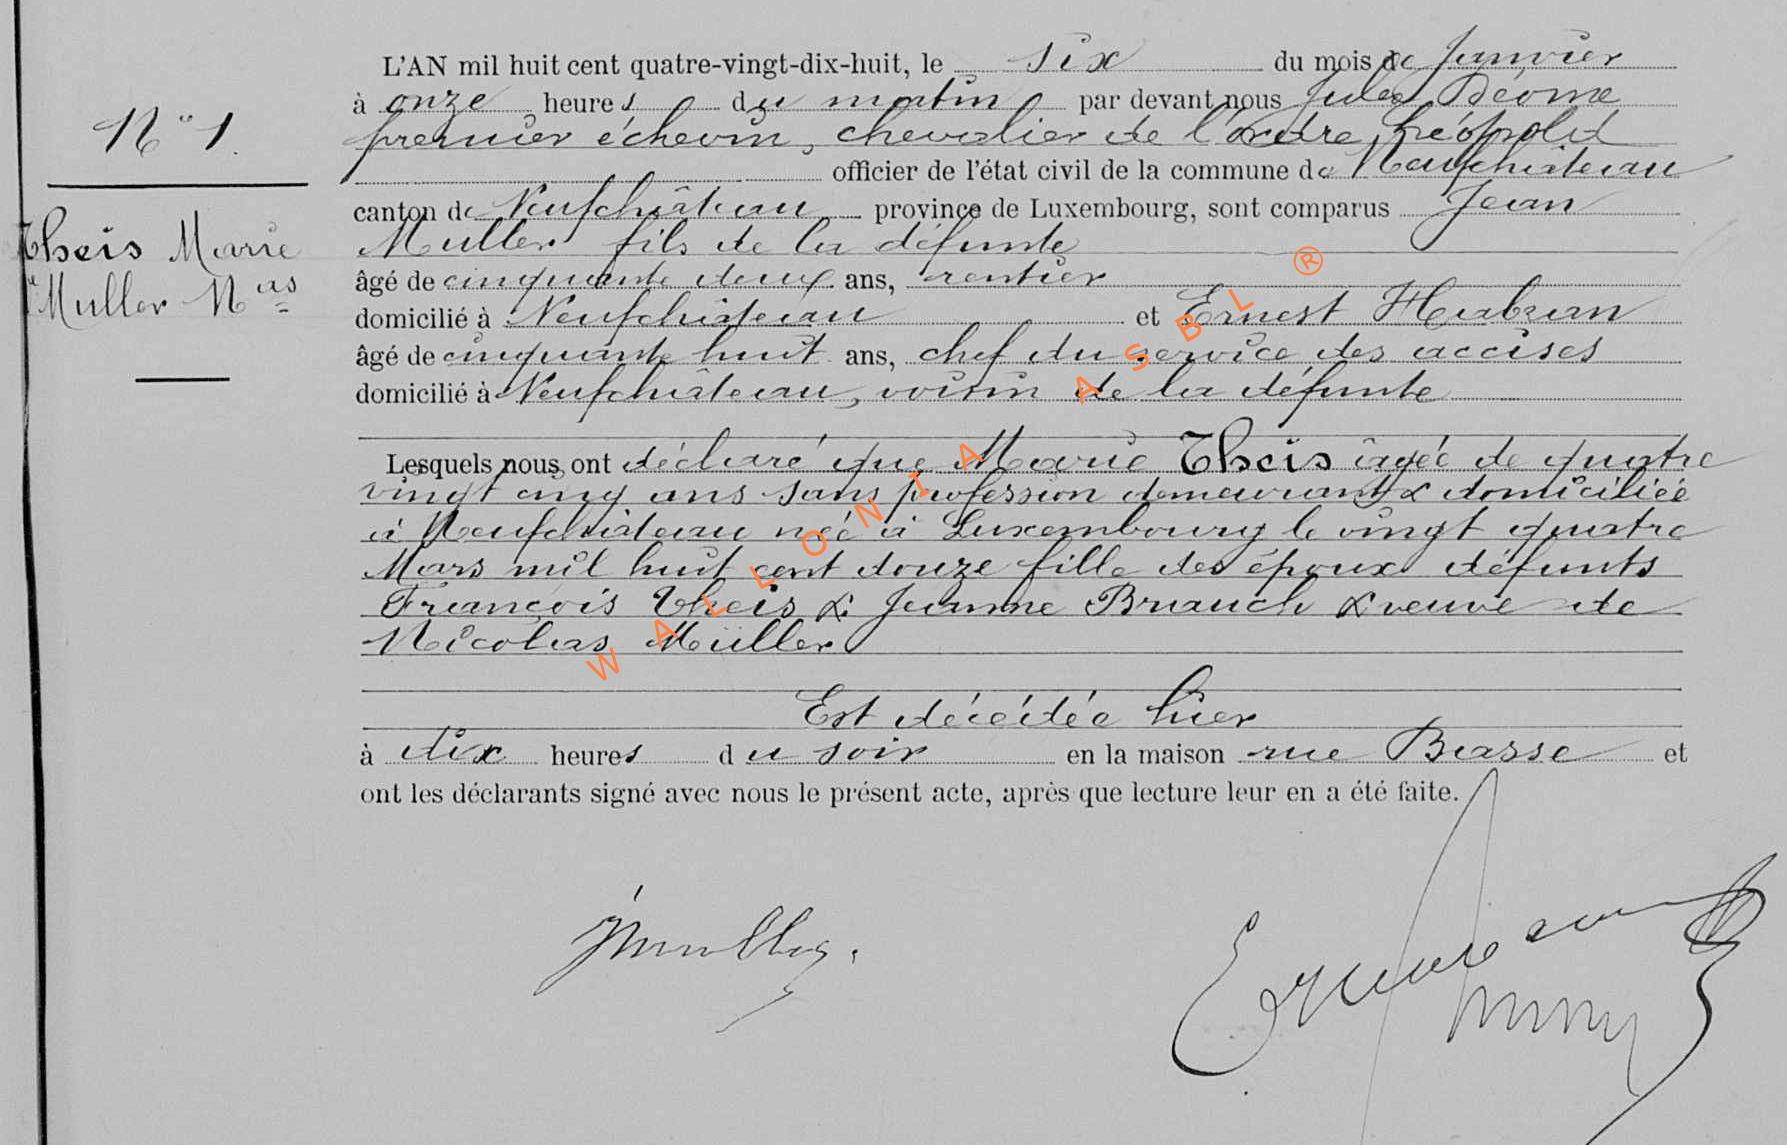 L'AN mil huit cent quatre-vingt-dix-huit, le six du mois de Janvier
à onze heures du matin par devant nous Jules
premier échevin, chevalier de l'ordre Léopold
officier de l'état civil de la commune de Neufchâteau
canton de Neufchâteau province de Luxembourg, sont comparus Jean
Muller fils de la défunte
âgé de cinquante deux ans, rentier
domicilié à Neufchâteau et Ernest
âgé de cinquante huit ans, chef du service des accises
domicilié à Neufchâteau, voisin de la défunte
Lesquels nous ont déclaré que Marie Theis âgée de quatre
vingt cinq ans sans profession demeurant & domiciliée
à Neufchâteau née à Luxembourg le vingt quatre
Mars mil huit cent douze fille des époux défunts
François Theis & Jeanne Brauch & veuve de
Nicolas Müller
Est décédée hier
à dix heures du soir en la maison rue Basse et
ont les déclarants signé avec nous le présent acte, après que lecture leur en a été faite.
N° 1.
Theis Marie
Muller Nas
JMuller.
WALLONIA ASBL ®